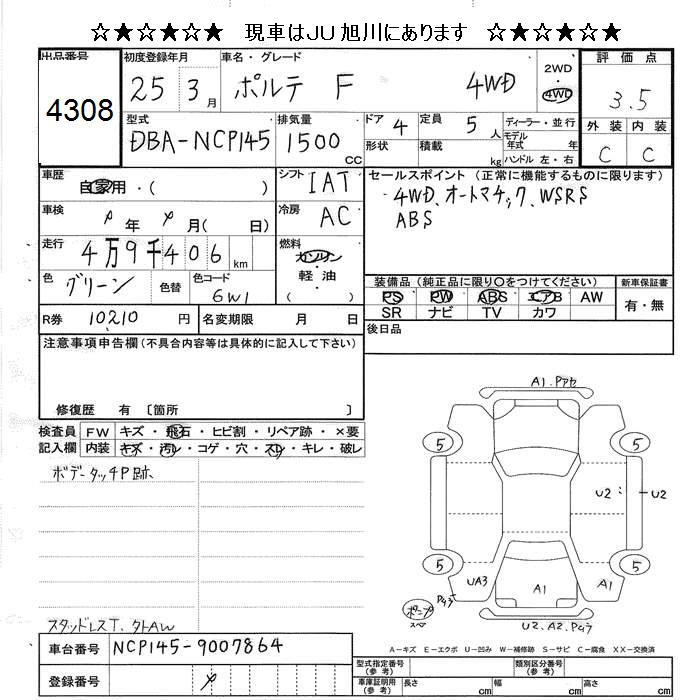 ☆★☆★☆★ 現車はJU旭川にあります ☆★☆★☆★
出品番号 初度登録年月 車名・グレード 評価点
4308 25 3月 ポルテ F 4WD 2WD 4WD 3.5
型式 排気量 ドア 定員 ディーラー・並行 外装 内装
DBA-NCP145 1500 CC 4 5人 形状 積載 kg モデル年式 年 ハンドル 左・右 C C
車歴 自家用・( ) シフト IAT セールスポイント (正常に機能するものに限ります)
4WD、オートマチック、WSRS
ABS
車検 年 月( 日) 冷房 AC
走行 4万9千406km 燃料 ガソリン・軽油 ( )
色 グリーン 色替 色コード 6W1 装備品 (純正品に限り○をつけてください) 新車保証書
PS PW ABS エアB AW 有・無
SR ナビ TV カワ
R券 10210円 名変期限 月 日 後日品
注意事項申告欄 (不具合内容等は具体的に記入して下さい)
修復歴 有 〔箇所 〕
検査員記入欄 FW キズ・飛石・ヒビ割・リペア跡・×要
内装 キズ・汚レ・コゲ・穴・スレ・キレ・破レ
ボデータッチP跡、
スタッドレスT、タトAW
A1.Pアセ
5 5
U2 : -U2
5 5
UA3 A1 A1
ポンプ
スペ
U2.A2.Pヘコ
A-キズ E-エクボ U-凹み W-補修跡 S-サビ C-腐食 XX-交換済
車台番号 NCP145-9007864
登録番号
型式指定番号 (参考) 類別区分番号 (参考)
車庫証明用 (参考) 長さ cm 幅 cm 高さ cm